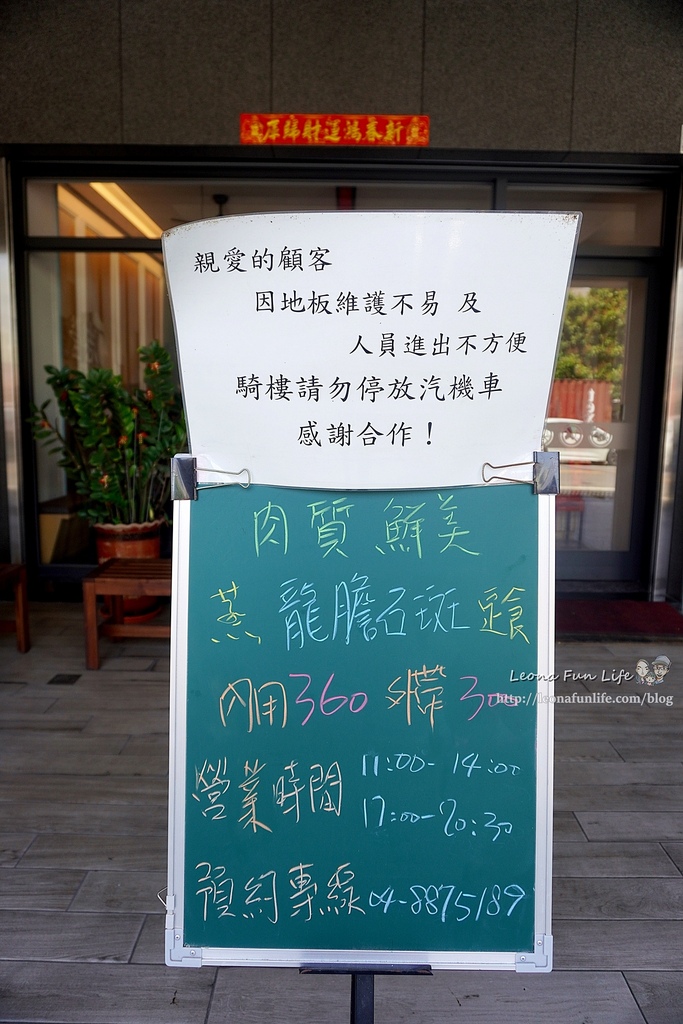 新春鴻運財歸庫
親愛的顧客
因地板維護不易 及
人員進出不方便
騎樓請勿停放汽機車
感謝合作！
肉質鮮美
蒸龍膽石斑定食
內用360 外帶300
營業時間 11:00-14:00
17:00-20:30
預約專線04-8875189
Leona Fun Life
http://leonafunlife.com/blog